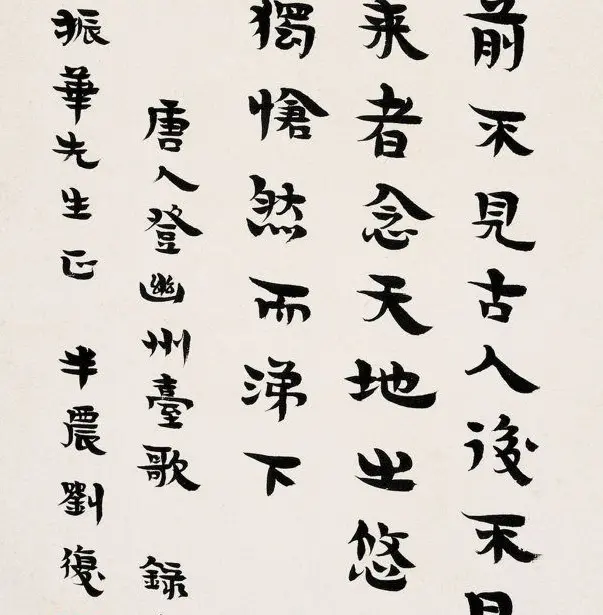 前不見古人後不見
来者念天地之悠
獨愴然而涕下
唐人登幽州臺歌 錄
振華先生正 半農劉復